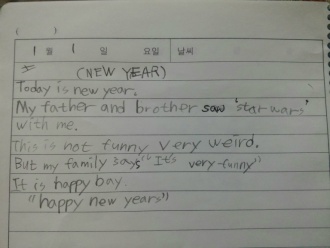 ( )
1 월 1 일 요일 날씨
(NEW YEAR)
Today is new year.
My father and brother saw 'star wars'
with me.
This is not funny very weird.
But my family says "It's very funny"
It is happy bay.
"happy new years"